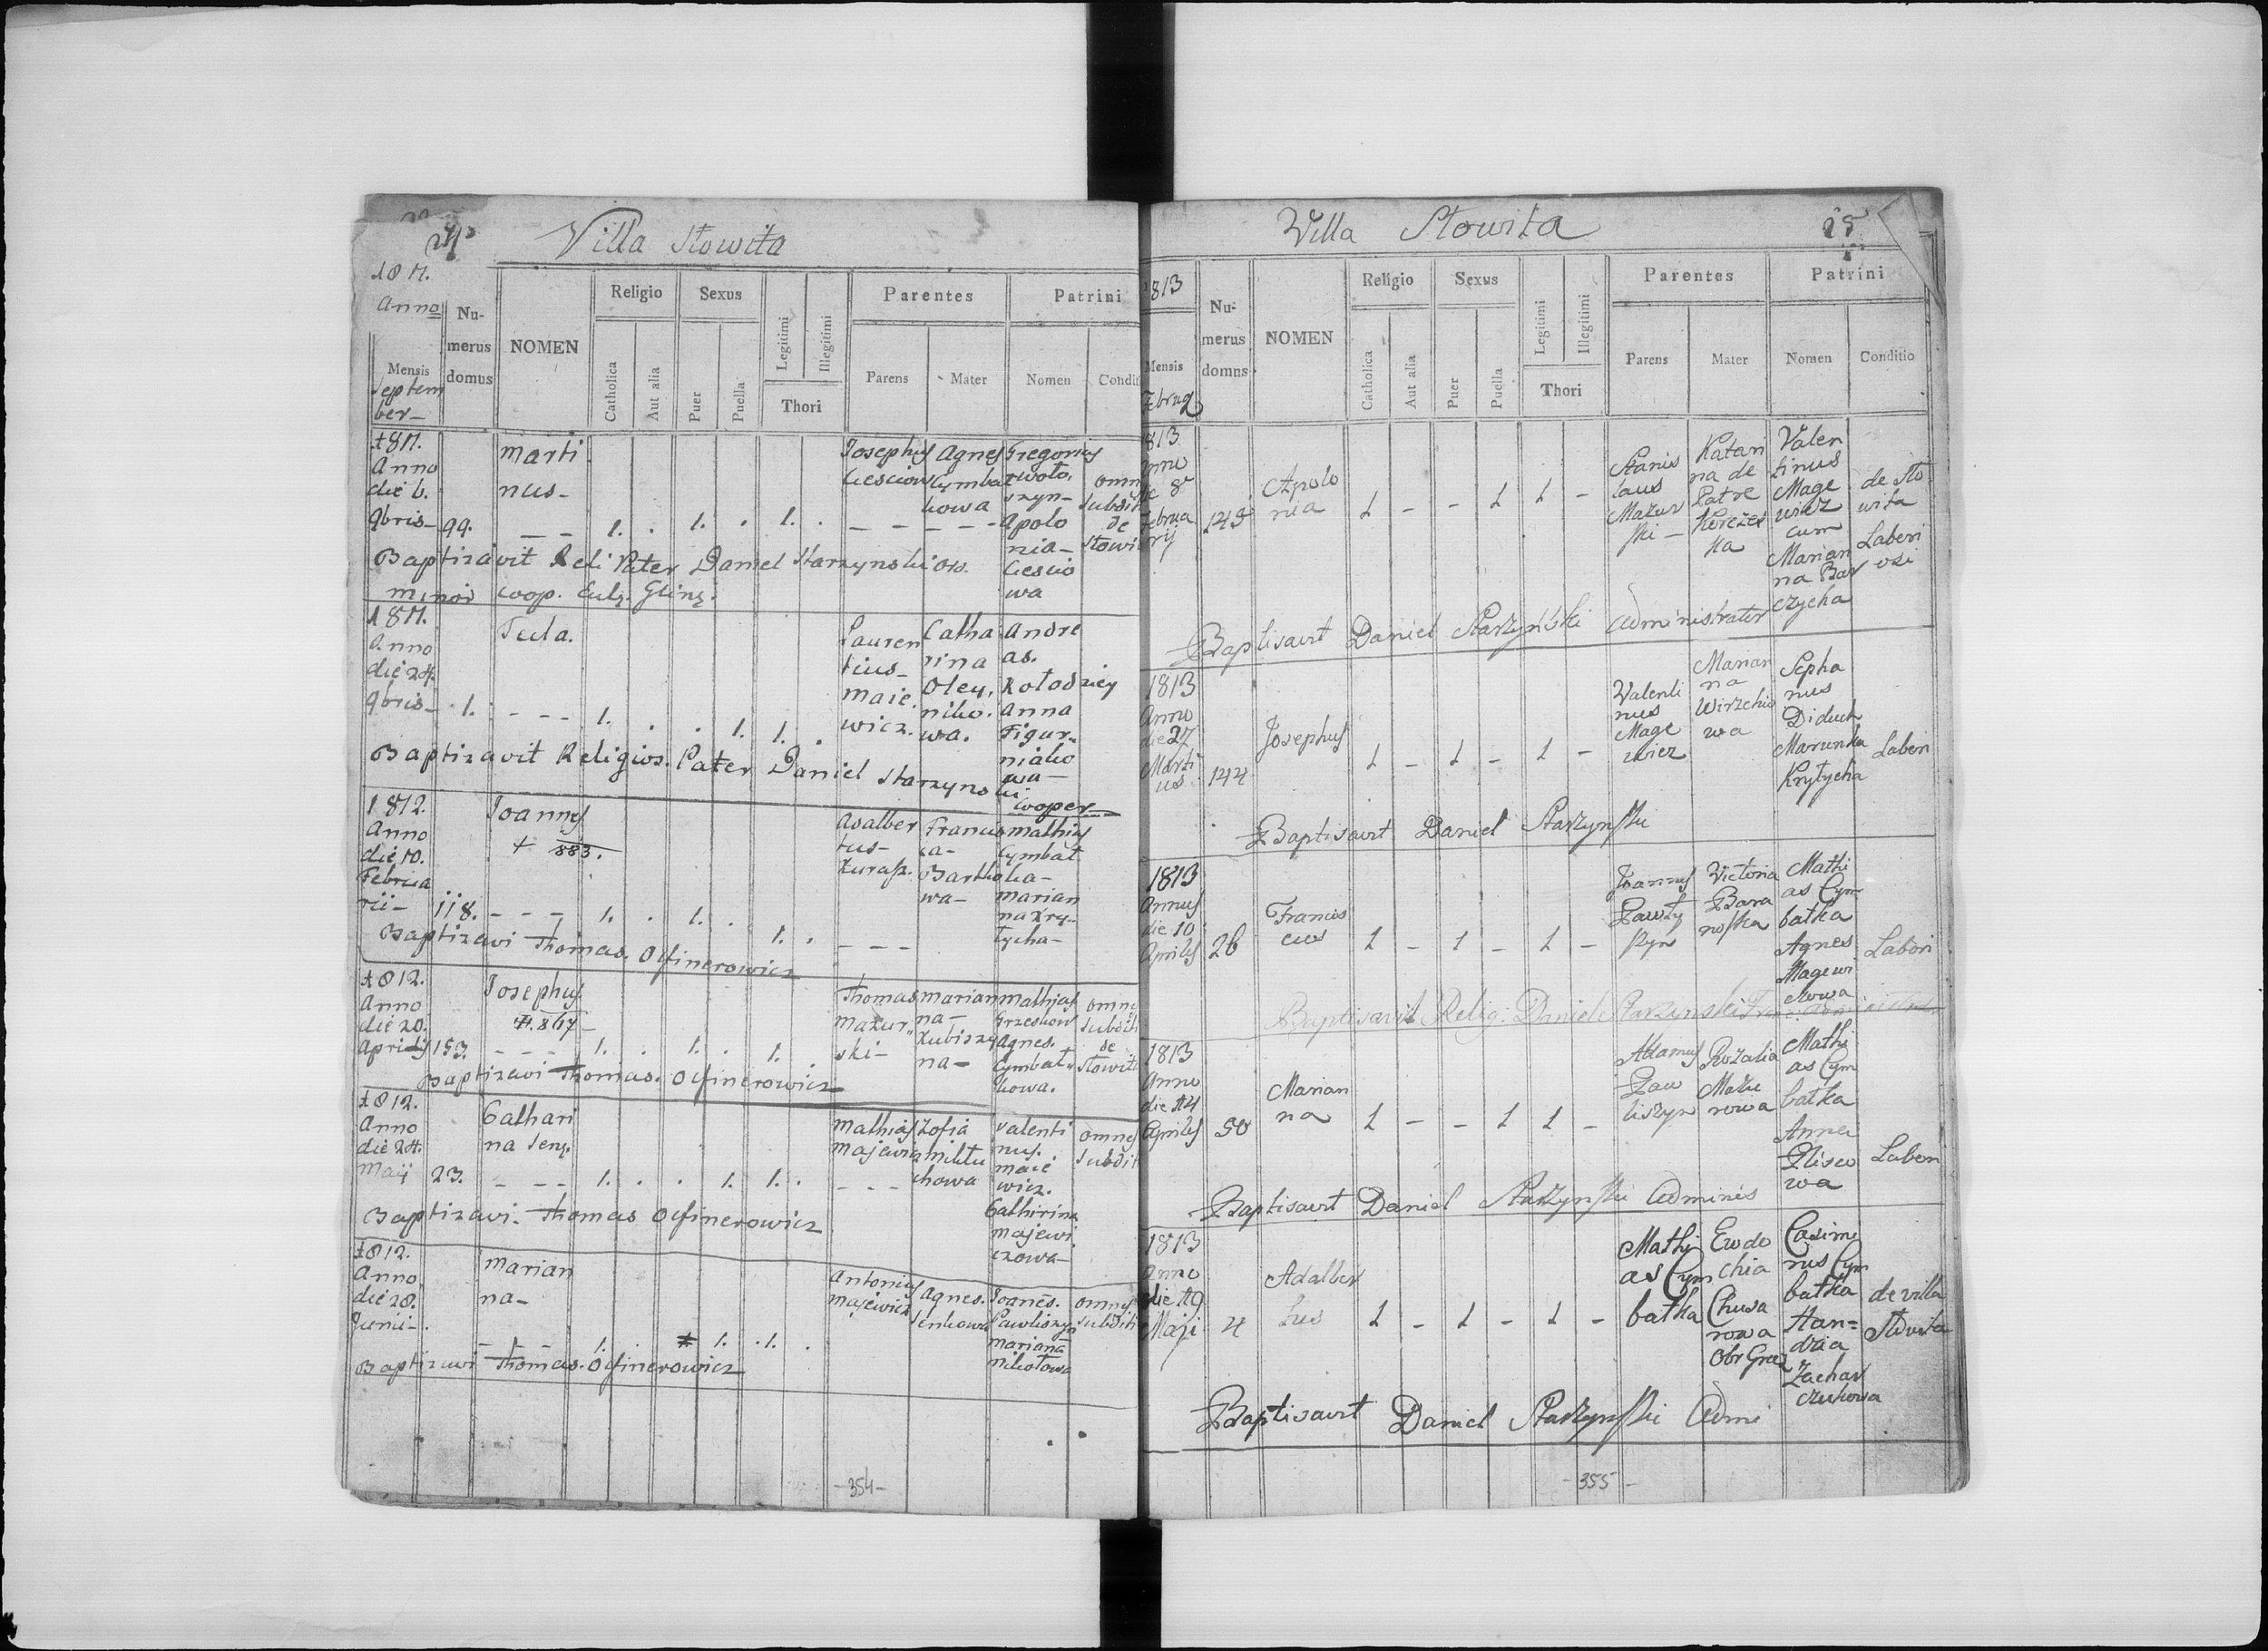 24
Villa Słowita
1811.
Anno
Mensis
Septem
ber
Nu-
merus
domus
NOMEN
Religio
Catholica
Aut alia
Sexus
Puer
Puella
Legitimi
Illegitimi
Thori
Parentes
Parens
Mater
Patrini
Nomen
Condit
1811.
Anno
die 6.
9bris
99.
Marti
nus
1. . 1. . 1. .
Josephus
Agnes
Cymbał
kowa
Gregorius
Apolo
nia
omn
Subditi
de
Słowi
Baptizavit Reli Pater Daniel Starzynski Ord.
minor coop. Gliny.
1811.
Anno
die 24.
9bris
1.
Tecla.
1. . . 1. 1. .
Lauren
tius
Maie
wicz.
Catha
rina
Oley,
niko.
wa.
Andre
as.
Kołodziey
Anna
Figur
niako
wa
Baptizavit Religios. Pater Daniel Starzynski
Cooper
1812.
Anno
die 10.
Februa
rii
118.
Joannes
+ 883.
1. . 1. . 1. .
Adalber
tus
Francis
ca
Bartho
wa
Mathias
Cymbał
ka
Marian
na Kry
tycha
Baptizavi Thomas. Ofinerowicz
1812.
Anno
die 20.
Aprilis
153.
Josephus
1. . 1. . 1. .
Thomas
Mazur
ski
Marian
na
Kubiszy
na
Mathias
Grzeskow
Agnes.
Cymbał
kowa.
omnes
Subditi
de
Słowita
Baptizavi Thomas. Ofinerowicz
1812.
Anno
die 24.
Maij
23.
Cathari
na
1. . . 1. 1. .
Mathias
Majewicz
Zofia
Mikłu
chowa
Valenti
nus.
Maie
wicz.
Catharina
Majewi
czowa
omnes
Subditi
Baptizavi. Thomas Ofinerowicz
1812.
Anno
die 28.
Junii
Marian
na
1. 1. 1.
Antonius
Majewicz
Agnes.
Senkowa
Joanes.
Pawliszyn
Mariana
Nikołowa
omnes
Subditi
Baptizavi Thomas. Ofinerowicz
-354-
Villa Słowita
25
1813
Mensis
Februa
Nu-
merus
domus
NOMEN
Religio
Catholica
Aut alia
Sexus
Puer
Puella
Legitimi
Illegitimi
Thori
Parentes
Parens
Mater
Patrini
Nomen
Conditio
813
Anno
die 8
Februa
rij
145
Apolo
nia
1 - - 1 1 -
Stanis
laus
Mazur
ski
Katari
na de
Patre
Korczes
ka
Valen
tinus
Mage
wicz
cum
Marian
na Bar
czycha
de Sło
wita
Labori
osi
Baptisavit Daniel Starzyński Administrator
1813
Anno
die 27
Marti
us
144
Josephus
1 - 1 - 1 -
Valenti
nus
Mage
wicz
Marian
na
Wirzcho
wa
Stepha
nus
Diduch
Marunka
Krytycha
Labori
Baptisavit Daniel Starzynski
1813
Annus
die 10
Aprilis
26
Francis
cus
1 - 1 - 1 -
Joannes
Pawły
szyn
Victoria
Bara
noska
Mathi
as Cym
bałka
Agnes
Magewi
czowa
Labori
Baptisavit Relig: Daniel Starzynski
1813
Anno
die 14
Aprilis
50
Marian
na
1 - - 1 1 -
Adamus
Paw
liszyn
Rozalia
Mazu
rowa
Mathi
as Cym
bałka
Anna
Plisco
wa
Labori
Baptisavit Daniel Starzynski Adminis
1813
Anno
die 19
Maji
4
Adalber
tus
1 - 1 - 1 -
Mathi
as Cym
bałka
Ewdo
chia
Chusa
rowa
Obr Grec
Casimi
rus Cym
bałka
Han=
dzia
Zachar
czukowa
de villa
Słowita
Baptisavit Daniel Starzynski Admi
- 355 -